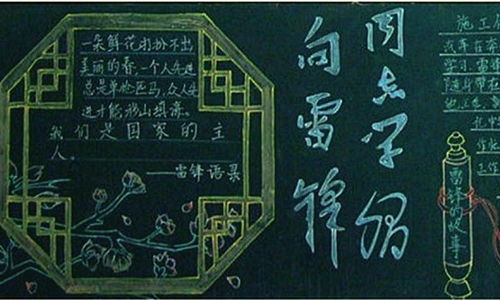 一朵鲜花打扮不出
美丽的春,一个人先进
总是单枪匹马,众人先
进才能移山填海。
我们是国家的主
人。
——雷锋语录
向雷锋
同志学习
施工
学习,雷锋
随身带
雷锋的故事